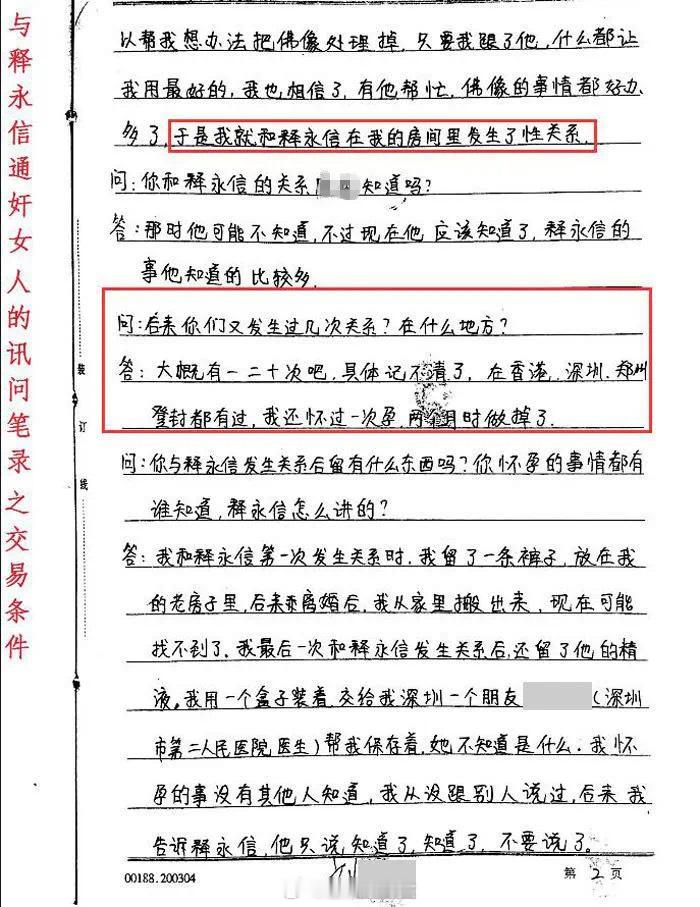 与释永信通奸女人的讯问笔录之交易条件
以帮我想办法把佛像处理掉，只要我跟了他，什么都让
我用最好的，我也相信了，有他帮忙，佛像的事情都好办
多了，于是我就和释永信在我的房间里发生了性关系．
问：你和释永信的关系 知道吗？
答：那时他可能不知道，不过现在他应该知道了，释永信的
事他知道的比较多．
问：后来你们又发生过几次关系？在什么地方？
答：大概有一二十次吧，具体记不清了，在香港．深圳．郑州
登封都有过，我还怀过一次孕，两个月时做掉了．
问：你与释永信发生关系后留有什么东西吗？你怀孕的事情都有
谁知道，释永信怎么讲的？
答：我和释永信第一次发生关系时，我留了一条裤子，放在我
的老房子里，后来我离婚后，我从家里搬出来，现在可能
找不到了，我最后一次和释永信发生关系后，还留了他的精
液，我用一个盒子装着，交给我深圳一个朋友 （深圳
市第二人民医院医生）帮我保存着，她不知道是什么．我怀
孕的事没有其他人知道，我从没跟别人说过，后来我
告诉释永信，他只说知道了，知道了，不要说了。
装
订
线
00188.200304
第 2 页